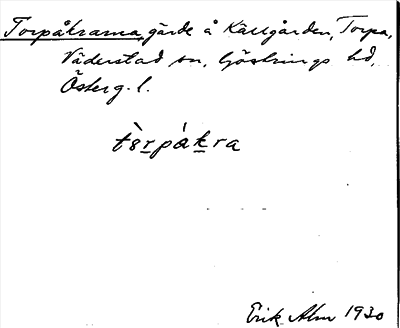 Torpåkrarna, gärde å Källgården, Torpa,
Väderstad sn, Göstrings hd,
Österg. l.
tòrpákra
Erik Alm 1930